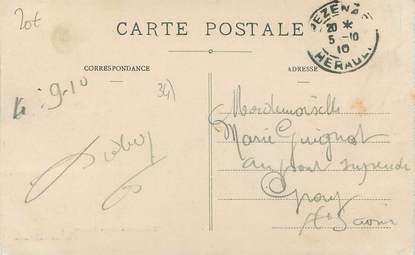 Lot
CARTE POSTALE
PEZENAS
20 *
5 - 10
10
HERAULT
CORRESPONDANCE
ADRESSE
9-10
34)
Mademoiselle
Marie Guignot
au pont suspendu
Gray
Hte Saône